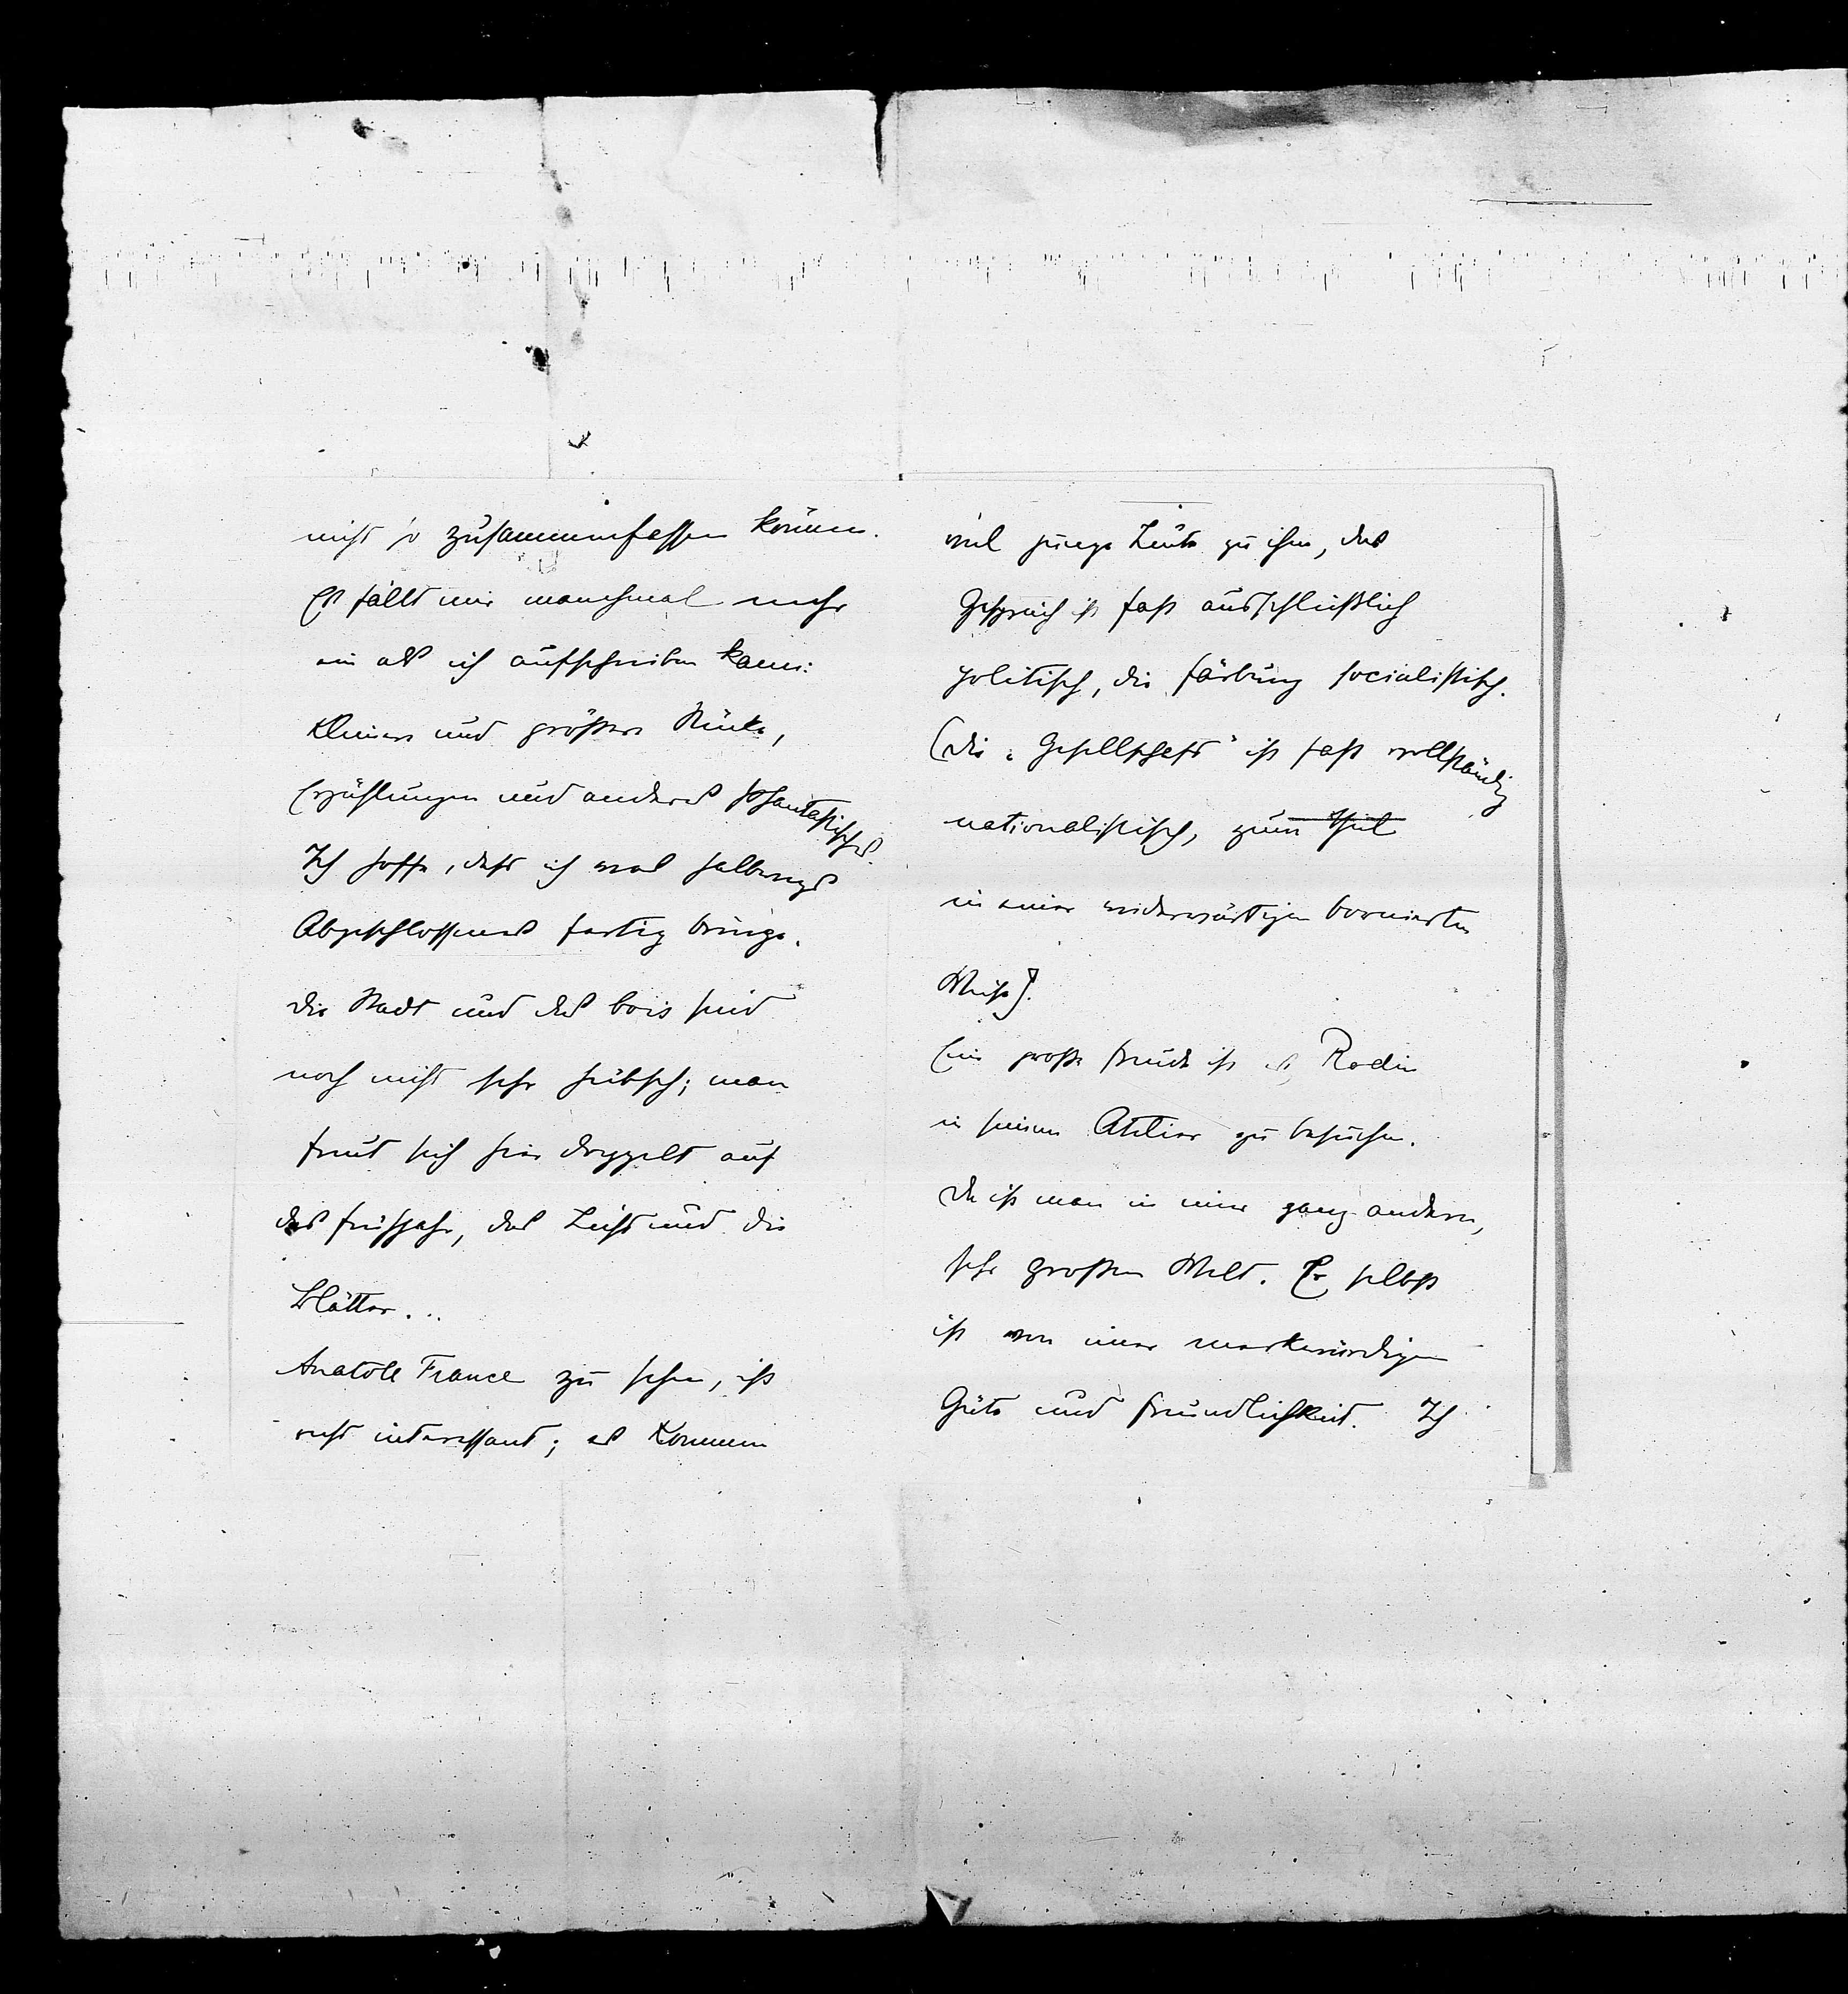 nicht so zusammenfassen können.
Es fällt mir manchmal mehr
ein als ich aufschreiben kann:
kleinere und größere Stücke,
Erzählungen und anderes phantastisches.
Ich hoffe, dass ich was halbwegs
Abgeschlossenes fertig bringe.
Die Stadt und das bois sind
noch nicht sehr hübsch; man
freut sich hier doppelt auf
das Frühjahr, das Licht und die
Blätter...
Anatole France zu sehen, ist
recht interessant; es kommen
viel junge Leute zu ihm, das
Gespräch ist fast ausschließlich
politisch, die Färbung socialistisch.
(Die „Gesellschaft" ist fast vollständig
nationalistisch, zum Theil
in einer widerwärtigen bornierten
Weise).
Eine große Freude ist es, Rodin
in seinem Atelier zu besuchen.
Da ist man in einer ganz andern,
sehr großen Welt. Er selbst
ist von einer merkwürdigen
Güte und Freundlichkeit. Ich